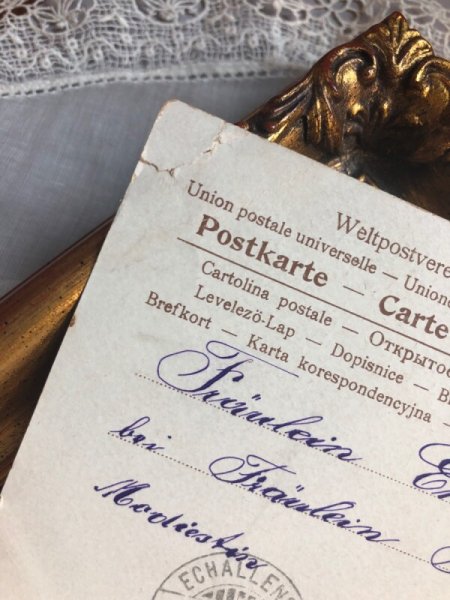 Weltpostvere
Union postale universelle — Union
Postkarte — Carte
Cartolina postale — Открытое
Levelező-Lap — Dopisnice — B
Brefkort — Karta korespondencyjna —
Fräulein
bei Fräulein
Modistin
ECHALLEN